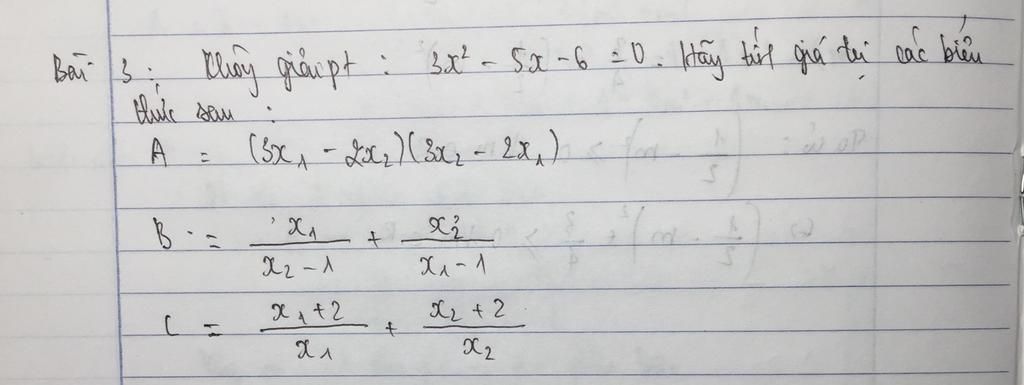 Bài 3 : Không giải pt : 3x² - 5x - 6 = 0. Hãy tính giá trị các biểu
thức sau :
A = (3x₁ - 2x₂)(3x₂ - 2x₁)
B = x₁/(x₂ - 1) + x₂/(x₁ - 1)
C = (x₁ + 2)/x₁ + (x₂ + 2)/x₂